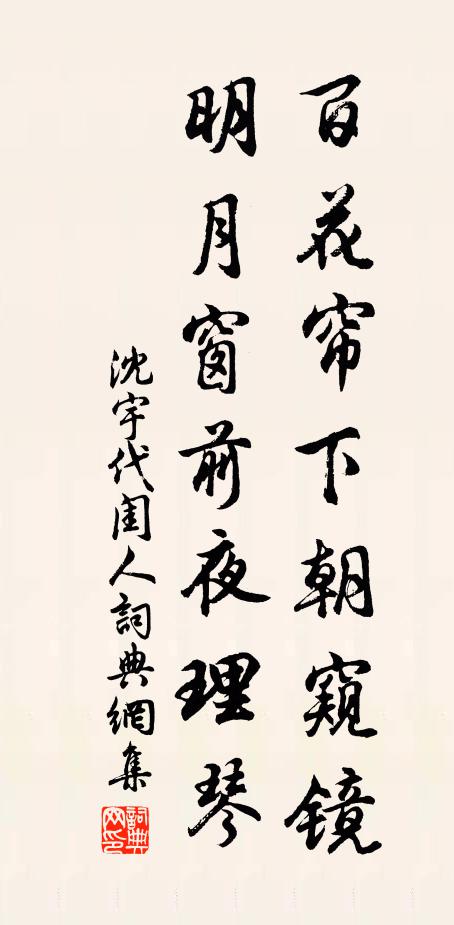 百花帘下朝窥镜
明月窗前夜理琴
沈宇代闺人詞典網集
詞典网印